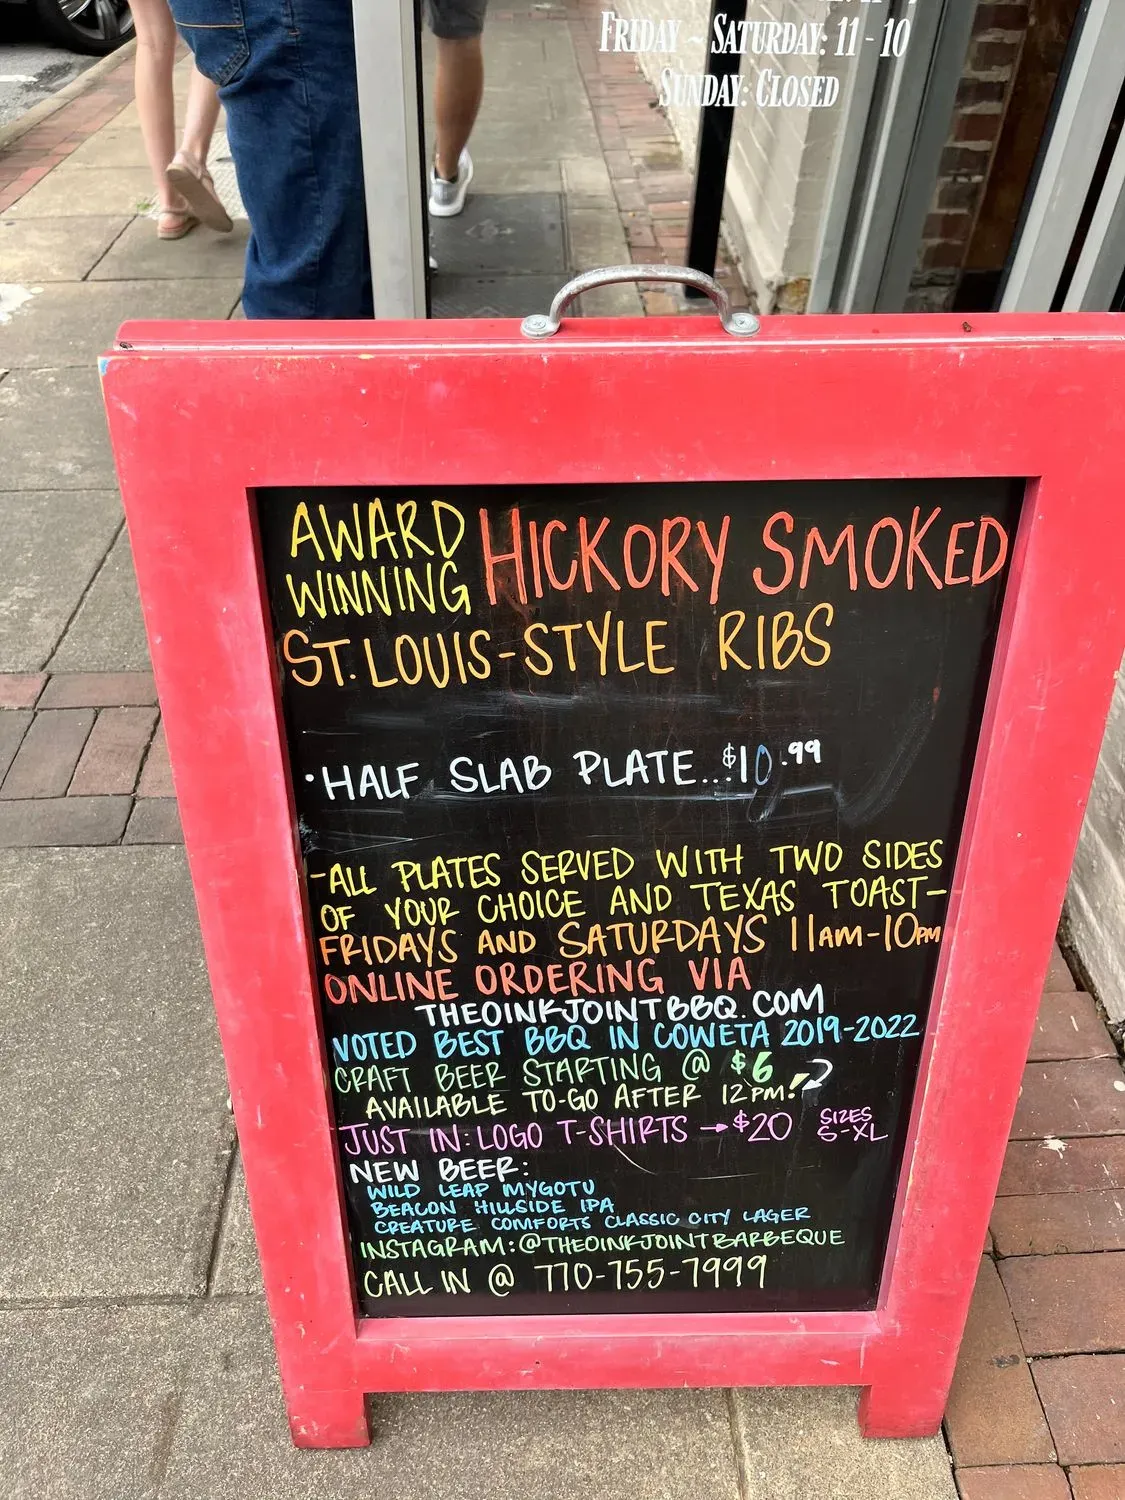 FRIDAY ~ SATURDAY: 11 - 10
SUNDAY: CLOSED
AWARD WINNING HICKORY SMOKED
ST. LOUIS-STYLE RIBS
• HALF SLAB PLATE...$10.99
-ALL PLATES SERVED WITH TWO SIDES
OF YOUR CHOICE AND TEXAS TOAST-
FRIDAYS AND SATURDAYS 11AM-10PM
ONLINE ORDERING VIA
THEOINKJOINTBBQ.COM
VOTED BEST BBQ IN COWETA 2019-2022
CRAFT BEER STARTING @ $6
AVAILABLE TO-GO AFTER 12PM!
JUST IN: LOGO T-SHIRTS → $20 SIZES S-XL
NEW BEER:
WILD LEAP MYGOTU
BEACON HILLSIDE IPA
CREATURE COMFORTS CLASSIC CITY LAGER
INSTAGRAM: @THEOINKJOINTBARBEQUE
CALL IN @ 770-755-7999